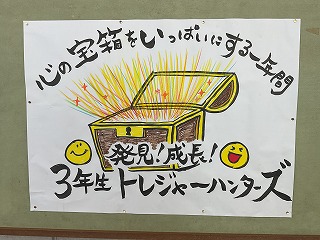 心の宝箱をいっぱいにする一年間
発見！成長！
3年生 トレジャーハンターズ